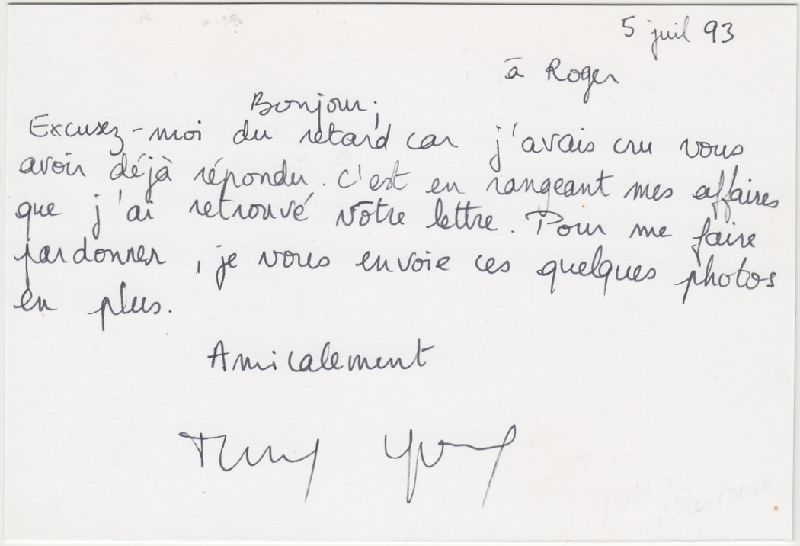 5 juil 93
à Roger
Bonjour;
Excusez-moi du retard car j'avais cru vous
avoir déjà répondu. C'est en rangeant mes affaires
que j'ai retrouvé votre lettre. Pour me faire
pardonner, je vous envoie ces quelques photos
en plus.
Amicalement